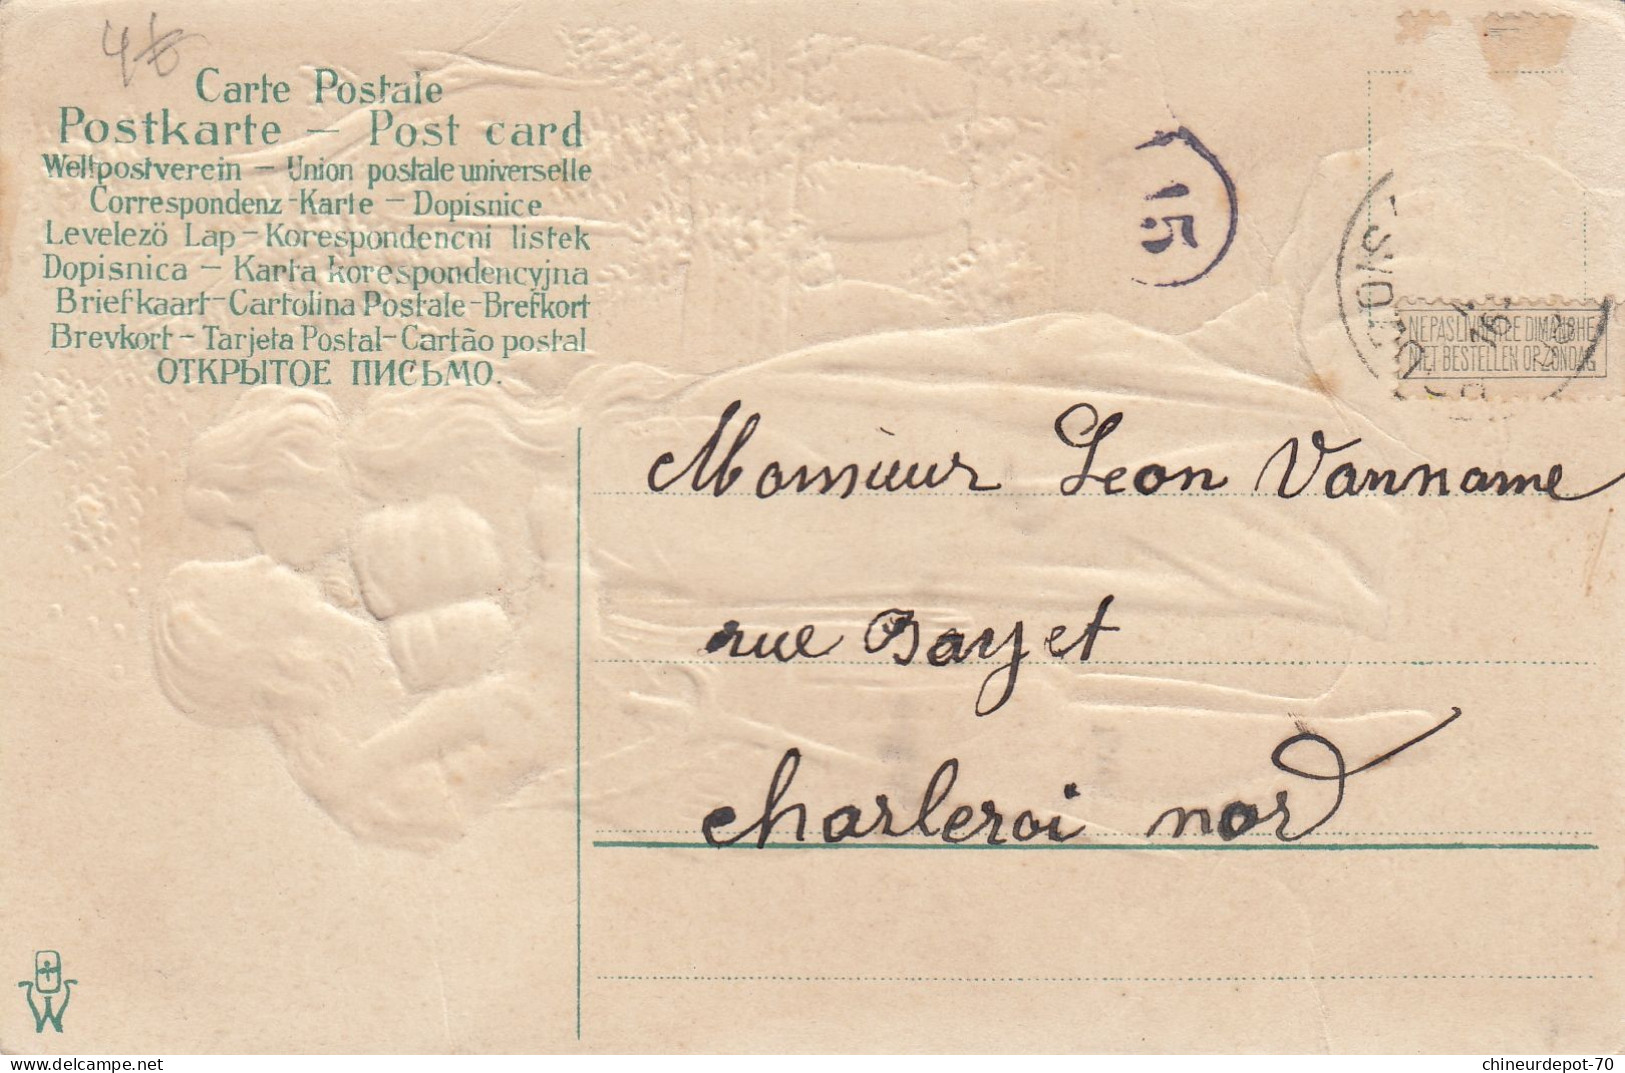 Carte Postale
Postkarte – Post card
Weltpostverein – Union postale universelle
Correspondenz-Karte – Dopisnice
Levelező Lap – Korespondencni listek
Dopisnica – Karta korespondencyjna
Briefkaart – Cartolina Postale – Brefkort
Brevkort – Tarjeta Postal – Cartão postal
ОТКРЫТОЕ ПИСЬМО.
15
NE PAS LIVRER LE DIMANCHE
NIET BESTELLEN OP ZONDAG
Monsieur Leon Vanname
rue Bayet
charleroi nord
W
chineurdepot-70
www.delcampe.net